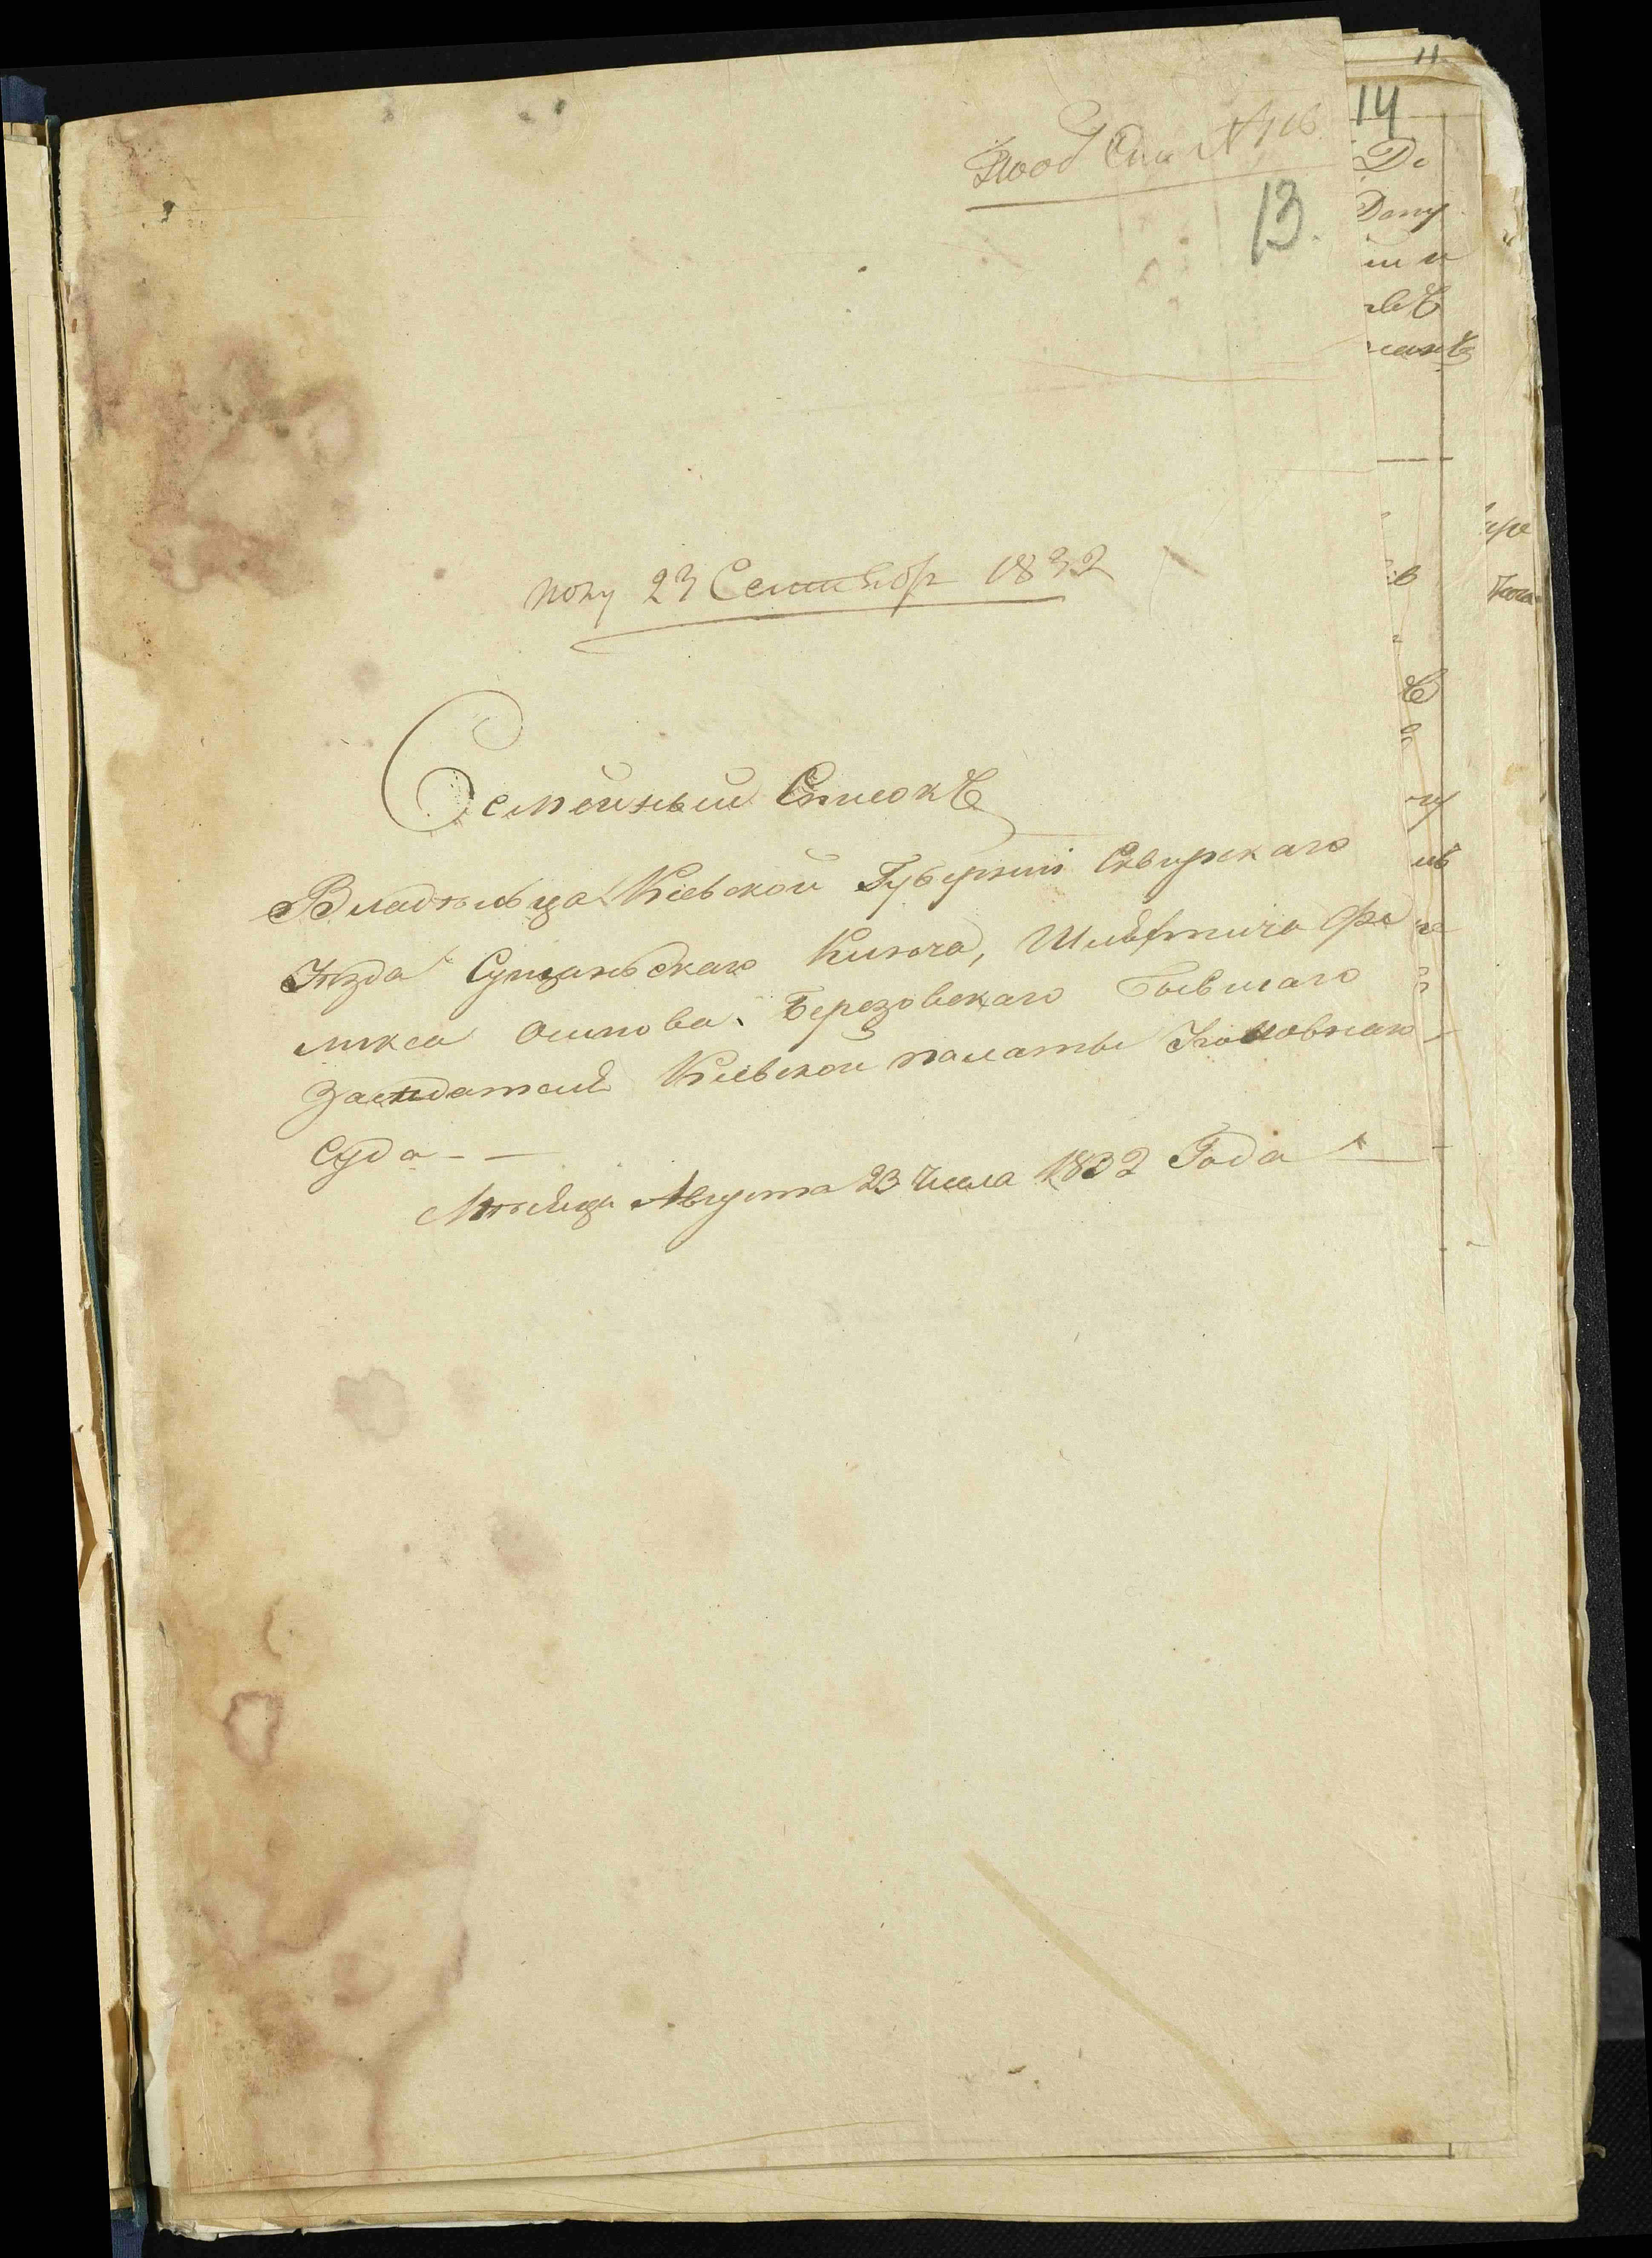 11
14
13.
полу 23 Сентября 1832
Семейный Списокъ
Владѣльца Кіевской Губерніи Сквирскаго
Уѣзда Сущанскаго Ключа, Шляхтича Фе
ликса Осипова Березовскаго бывшаго
Засѣдателя Кіевской палаты Уголовнаго
Суда - —
Мѣсяца Августа 23 числа 1832 Года